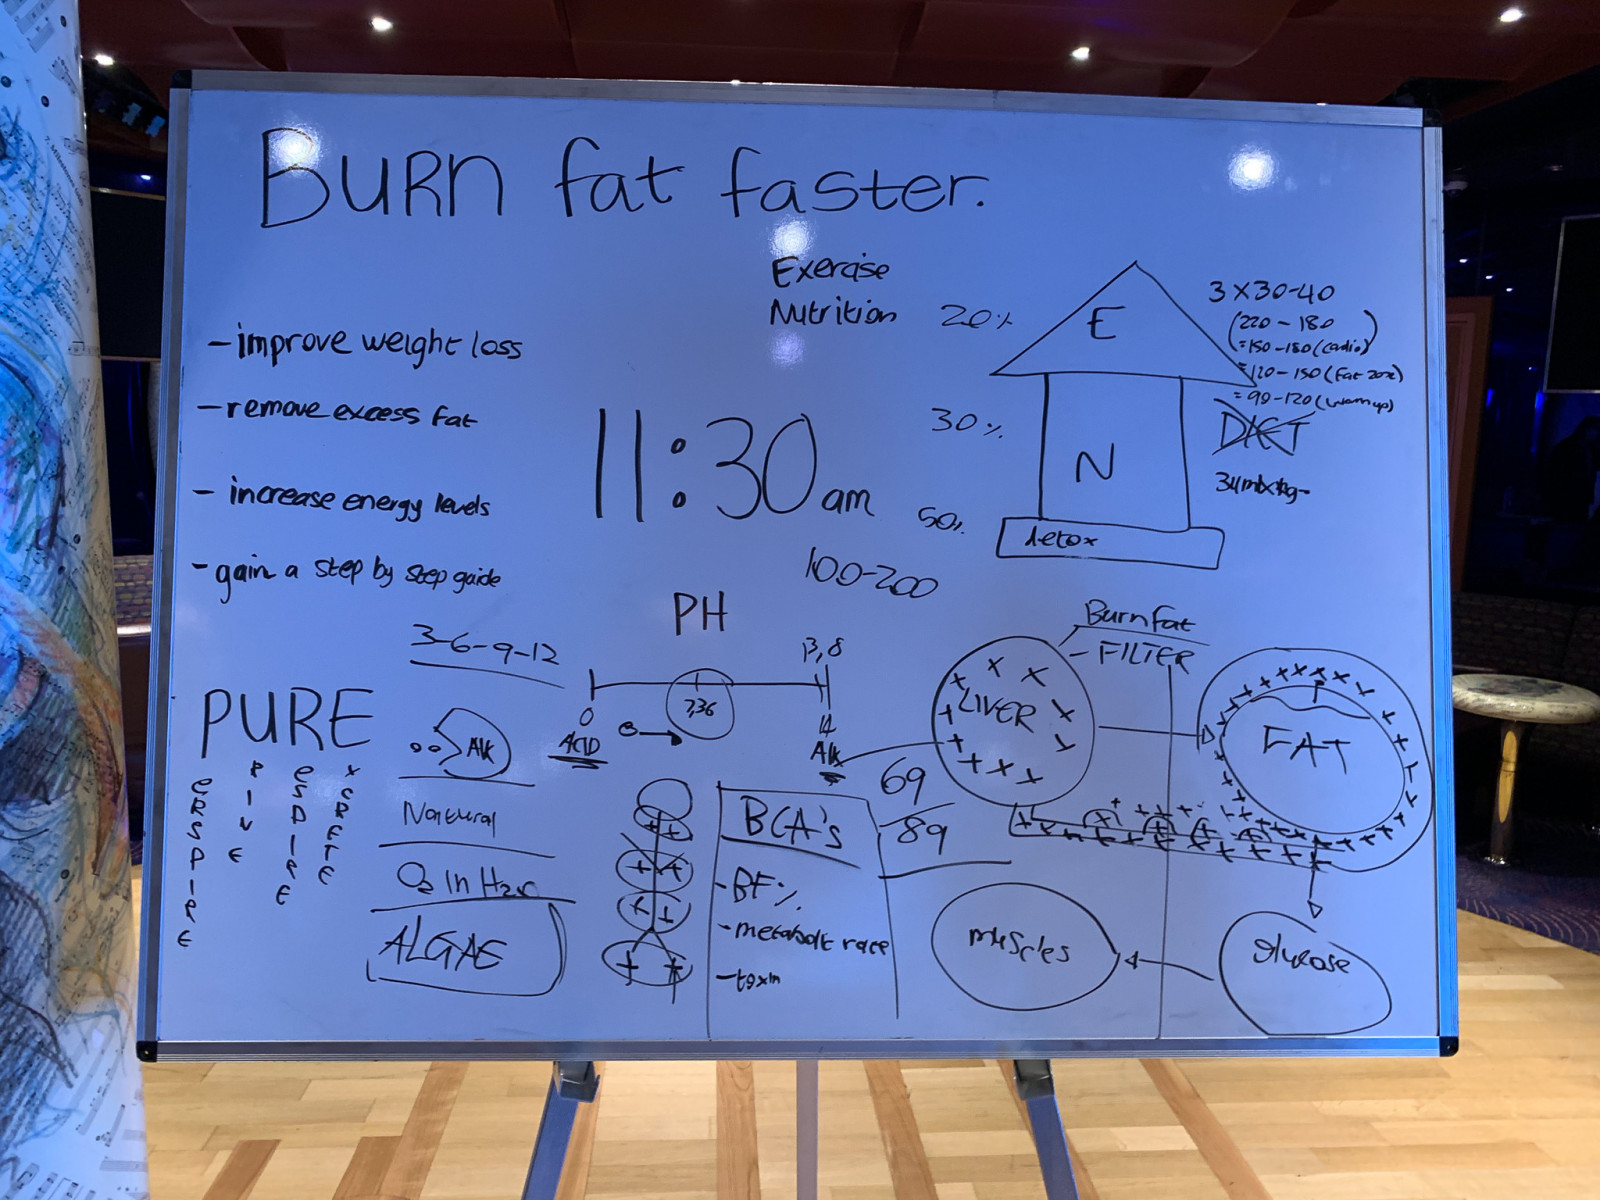 Burn fat faster.
Exercise
Nutrition
- improve weight loss
- remove excess fat
- increase energy levels
- gain a step by step guide
11:30 am
100-200
20%
30%
50%
E
N
detox
3 X 30-40
(220 - 180
= 150-180 (cardio)
= 120-150 (Fat zone)
= 90-120 (warm up)
DIET
3-6-9-12
PH
13,8
7,36
0
14
ACID
Alk
PURE
ERSPIRE
RINE
ESPIRE
XCRETE
Alk
Natural
O2 in H2O
ALGAE
BCA's
- BF%
- metabolic rate
- toxin
69
89
Burn fat
- FILTER
LIVER
FAT
muscles
glucose